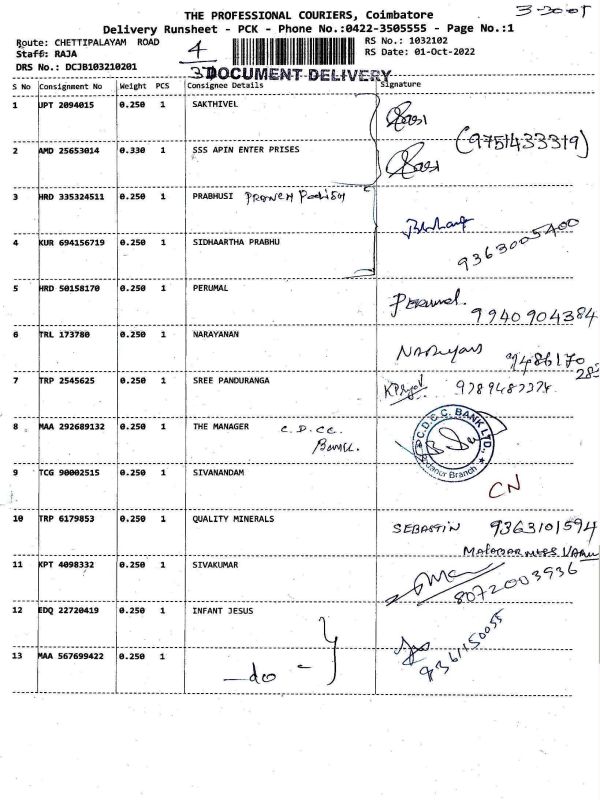 THE PROFESSIONAL COURIERS, Coimbatore
Delivery Runsheet - PCK - Phone No.:0422-3505555 - Page No.:1
Route: CHETTIPALAYAM ROAD
Staff: RAJA
DRS No.: DCJB103210201
4
37
RS No.: 1032102
RS Date: 01-Oct-2022
DOCUMENT DELIVERY
S No Consignment No Weight PCS Consignee Details Signature
1 UPT 2094015 0.250 1 SAKTHIVEL
(9751433319)
2 AMD 25653014 0.330 1 SSS APIN ENTER PRISES
3 HRD 335324511 0.250 1 PRABHUSI
4 KUR 694156719 0.250 1 SIDHAARTHA PRABHU 9363005400
5 HRD 50158170 0.250 1 PERUMAL Perumal. 9940904384
6 TRL 173780 0.250 1 NARAYANAN
7 TRP 2545625 0.250 1 SREE PANDURANGA
8 MAA 292689132 0.250 1 THE MANAGER C.D.CC. Bank.
C.D.C.C. BANK LTD.,
Branch
9 TCG 90002515 0.250 1 SIVANANDAM CN
10 TRP 6179853 0.250 1 QUALITY MINERALS SEBASTIN 9363101594
11 KPT 4098332 0.250 1 SIVAKUMAR 8072003936
12 EDQ 22720419 0.250 1 INFANT JESUS
13 MAA 567699422 0.250 1 -do-